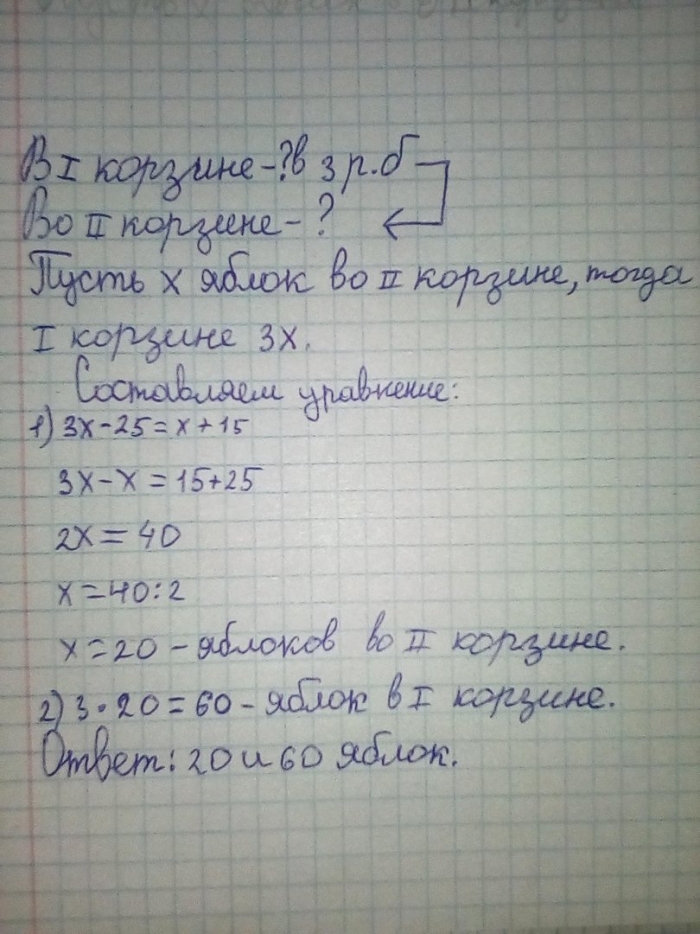 В I корзине-?в 3 р.б
Во II корзине-?
Пусть х яблок во II корзине, тогда
I корзине 3х.
Составляем уравнение:
1) 3х-25=х+15
3х-х=15+25
2х=40
х=40:2
х=20-яблоков во II корзине.
2) 3·20=60-яблок в I корзине.
Ответ: 20 и 60 яблок.